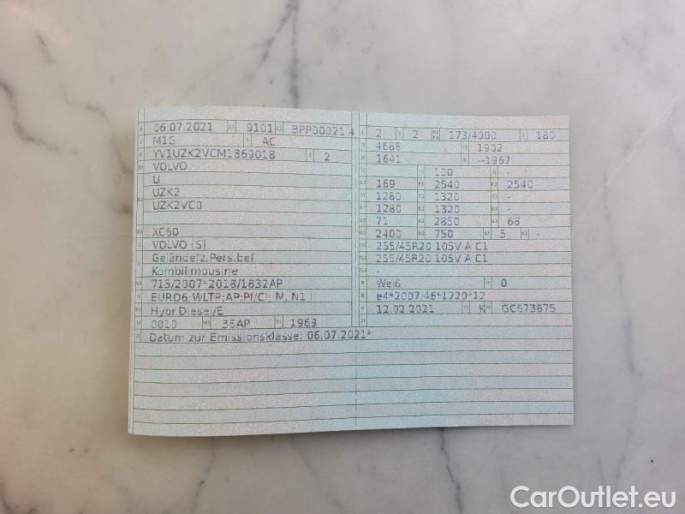 06.07.2021 9101 BPP00021 4
M1G AC
YV1UZK2VCM1869018 2
VOLVO
U
UZK2
UZK2VC0
XC60
VOLVO (S)
Geländefz.Pers.bef.
Kombilimousine
715/2007*2018/1832AP
EURO6;WLTP;AP;PI/CI; M, N1 I
Hybr.Diesel/E
0010 36AP 1969
Datum zur Emissionsklasse: 06.07.2021*
2 2 173/4000 180
4688 1902
1641 --1967
100 -
169 2540 2540
1280 1320 -
1280 1320 -
71 2850 68
2400 750 5 -
255/45R20 105V A C1
255/45R20 105V A C1
-
Weiß 0
e4*2007/46*1220*12
12.02.2021 K GC673675
CarOutlet.eu